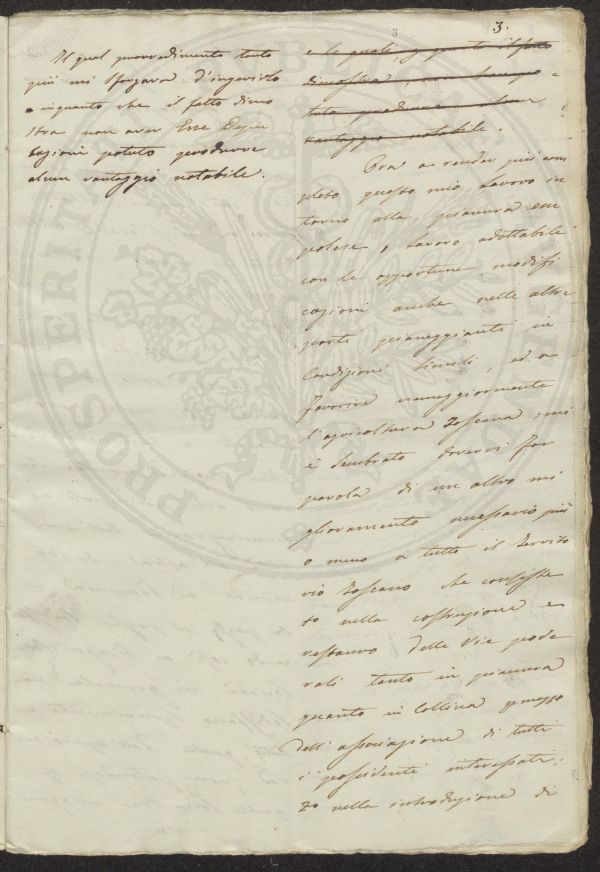 3.
Al qual provvedimento tanto
più mi sforzava d'ingerirlo
inquanto che il fatto dimo
stra non aver Esse Depu
tazioni potuto produrre
alcun vantaggio notabile.
e le quali, questo il fatto
dimostra, non hanno
produrre alcun
vantaggio notabile.
Ora a render più com
pleto questo mio lavoro in
torno alla pianura em
polese, lavoro adottabile
con le opportune modifi
cazioni anche nelle altre
parti pianeggianti in
Condizioni simili, ed a
favorire maggiormente
l'agricoltura Toscana, mi
è sembrato doverci far
parola di un altro mi
glioramento necessario più
o meno a tutto il Territo
rio Toscano che consiste
1o nella costruzione e
restauro delle Vie pode
rali tanto in pianura
quanto in Collina p mezzo
dell'associazione di tutti
i possidenti interessati;
2o nella introduzione di
PROSPERITATI PUBLICAE AUGENDAE